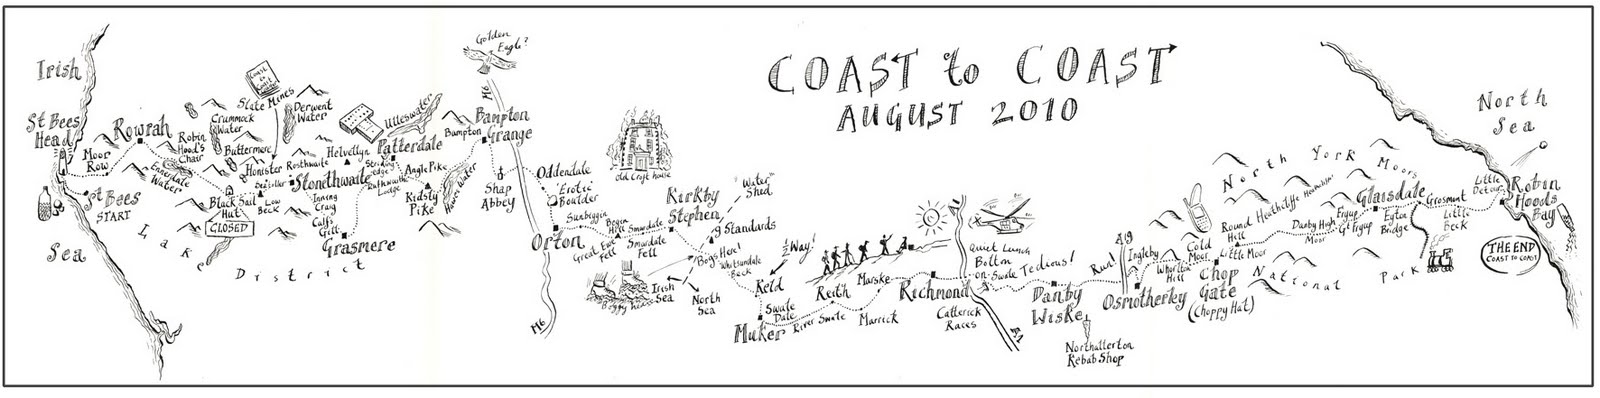 COAST to COAST
AUGUST 2010
Irish
Sea
St Bees
Head
Moor
Row
St Bees
START
Rowrah
Ennerdale
Water
Robin
Hood's
Chair
Crummock
Water
Buttermere
Coast
to
Coast
Slate Mines
Derwent
Water
Honister
Rosthwaite
Black Sail
Hut
CLOSED
Low
Beck
Stonethwaite
Helvellyn
Ullswater
Patterdale
Striding
edge
Grasmere
Lake
District
Angle Pike
Kidsty
Pike
Hawes Water
Golden
Eagle?
M6
Bampton
Bampton
Grange
Shap
Abbey
Oddendale
'Erotic'
Boulder
Orton
M6
Sunbiggin
Great Ewe
Fell
Begin
Hill
Smardale
Smardale
Fell
old Croft house
Kirkby
Stephen
"Water"
Shed
9 Standards
Bogs Here!
Whitsundale
Beck
Boggy
Irish
Sea
North
Sea
½ Way!
Keld
Swale
Dale
Muker
River Swale
Reith
Marske
Marrick
Richmond
Quick Lunch
Bolton
-on-Swale
Tedious!
Catterick
Races
A1
Danby
Wiske
Northallerton
Kebab Shop
Run!
A19
Ingleby
Osmotherley
Whorlton
Hill
Cold
Moor
Chop
Gate
(Choppy Hat)
Little Moor
Round
Hill
North York Moors
National Park
Heathcliffe
Danby High
Moor
Fryup
Gt Fryup
Glaisdale
Egton
Bridge
Grosmont
Little
Beck
Little
Detour
Robin
Hoods
Bay
North
Sea
THE END
COAST TO COAST